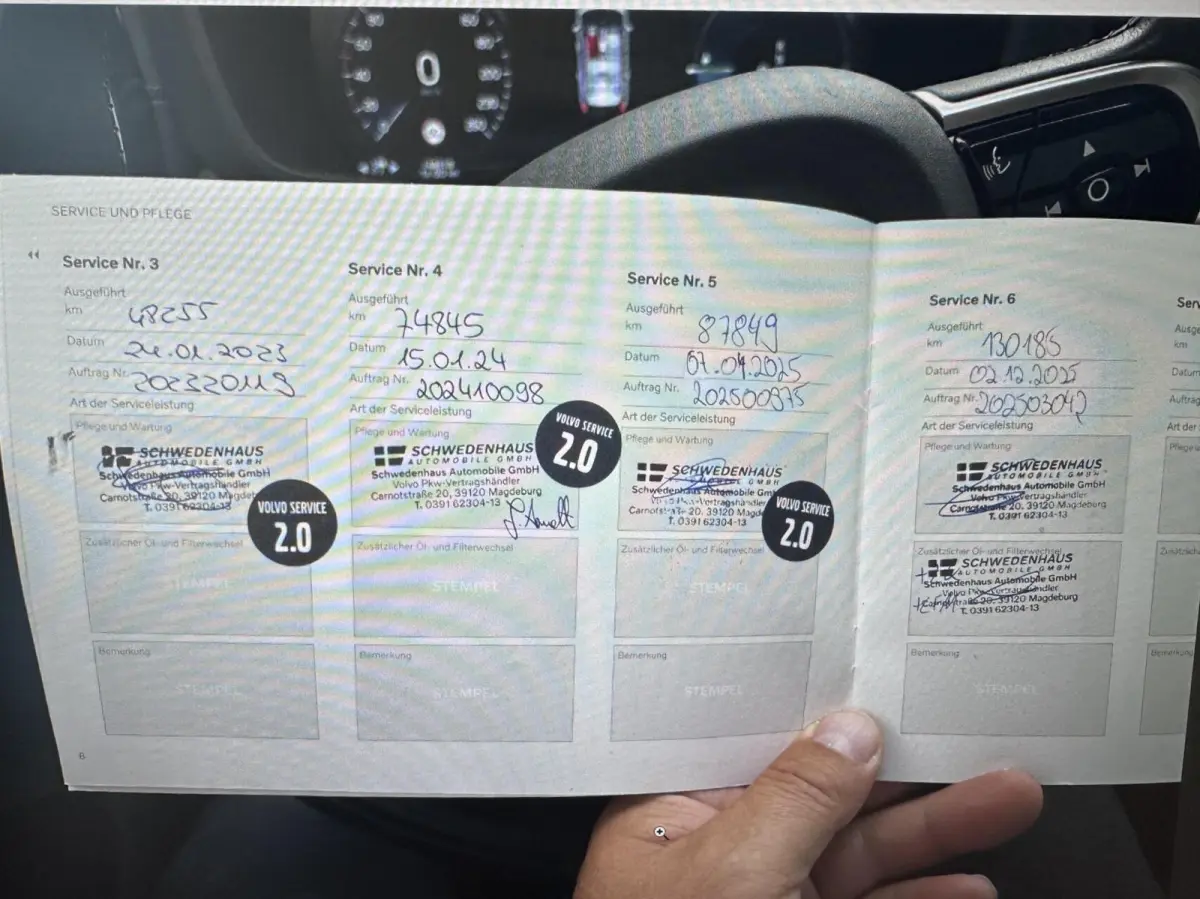 0
SERVICE UND PFLEGE
Service Nr. 3
Ausgeführt
km 48255
Datum 24.01.2023
Auftrag Nr. 202320119
Art der Serviceleistung
Pflege und Wartung
SCHWEDENHAUS
AUTOMOBILE GMBH
Schwedenhaus Automobile GmbH
Volvo Pkw-Vertragshändler
Carnotstraße 20, 39120 Magdeburg
T. 0391 62304-13
VOLVO SERVICE
2.0
Zusätzlicher Öl- und Filterwechsel
STEMPEL
Bemerkung
STEMPEL
6
Service Nr. 4
Ausgeführt
km 74845
Datum 15.01.24
Auftrag Nr. 202410098
Art der Serviceleistung
Pflege und Wartung
SCHWEDENHAUS
AUTOMOBILE GMBH
Schwedenhaus Automobile GmbH
Volvo Pkw-Vertragshändler
Carnotstraße 20, 39120 Magdeburg
T. 0391 62304-13
VOLVO SERVICE
2.0
Zusätzlicher Öl- und Filterwechsel
STEMPEL
Bemerkung
STEMPEL
Service Nr. 5
Ausgeführt
km 87849
Datum 07.04.2025
Auftrag Nr. 202500975
Art der Serviceleistung
Pflege und Wartung
SCHWEDENHAUS
AUTOMOBILE GMBH
Schwedenhaus Automobile GmbH
Volvo Pkw-Vertragshändler
Carnotstraße 20, 39120 Magdeburg
T. 0391 62304-13
VOLVO SERVICE
2.0
Zusätzlicher Öl- und Filterwechsel
STEMPEL
Bemerkung
STEMPEL
Service Nr. 6
Ausgeführt
km 130185
Datum 02.12.2025
Auftrag Nr. 202503042
Art der Serviceleistung
Pflege und Wartung
SCHWEDENHAUS
AUTOMOBILE GMBH
Schwedenhaus Automobile GmbH
Volvo Pkw-Vertragshändler
Carnotstraße 20, 39120 Magdeburg
T. 0391 62304-13
Zusätzlicher Öl- und Filterwechsel
SCHWEDENHAUS
AUTOMOBILE GMBH
Schwedenhaus Automobile GmbH
Volvo Pkw-Vertragshändler
Carnotstraße 20, 39120 Magdeburg
T. 0391 62304-13
Bemerkung
STEMPEL
Ser
Ausge
km
Datum
Auftrag
Art der
Pflege
Zusätzlic
Bemerkung